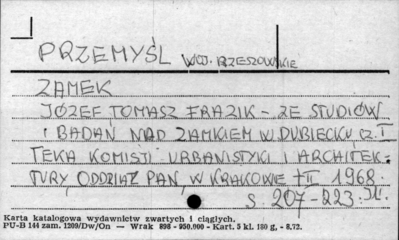 PRZEMYŚL WOJ. RZESZOWSKIE
ZAMEK
JÓZEF TOMASZ FRAZIK - ZE STUDIÓW
I BADAŃ NAD ZAMKIEM W DUBIECKU CZ. I
TEKA KOMISJI URBANISTYKI I ARCHITEK-
TURY ODDZIAŁ PAN W KRAKOWIE t II 1968.
s. 207-223. Il.
Karta katalogowa wydawnictw zwartych i ciągłych.
PU-B 144 zam. 1209/Dw/On — Wrak 898 - 950.000 - Kart. 5 kl. 180 g, - 8.72.